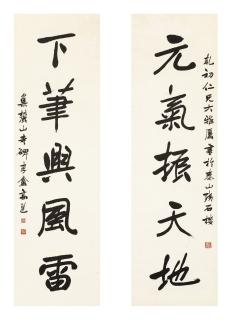 乾初仁兄大雅属書於泰山殘石樓
元氣振天地
下筆興風雷
集麓山寺碑字